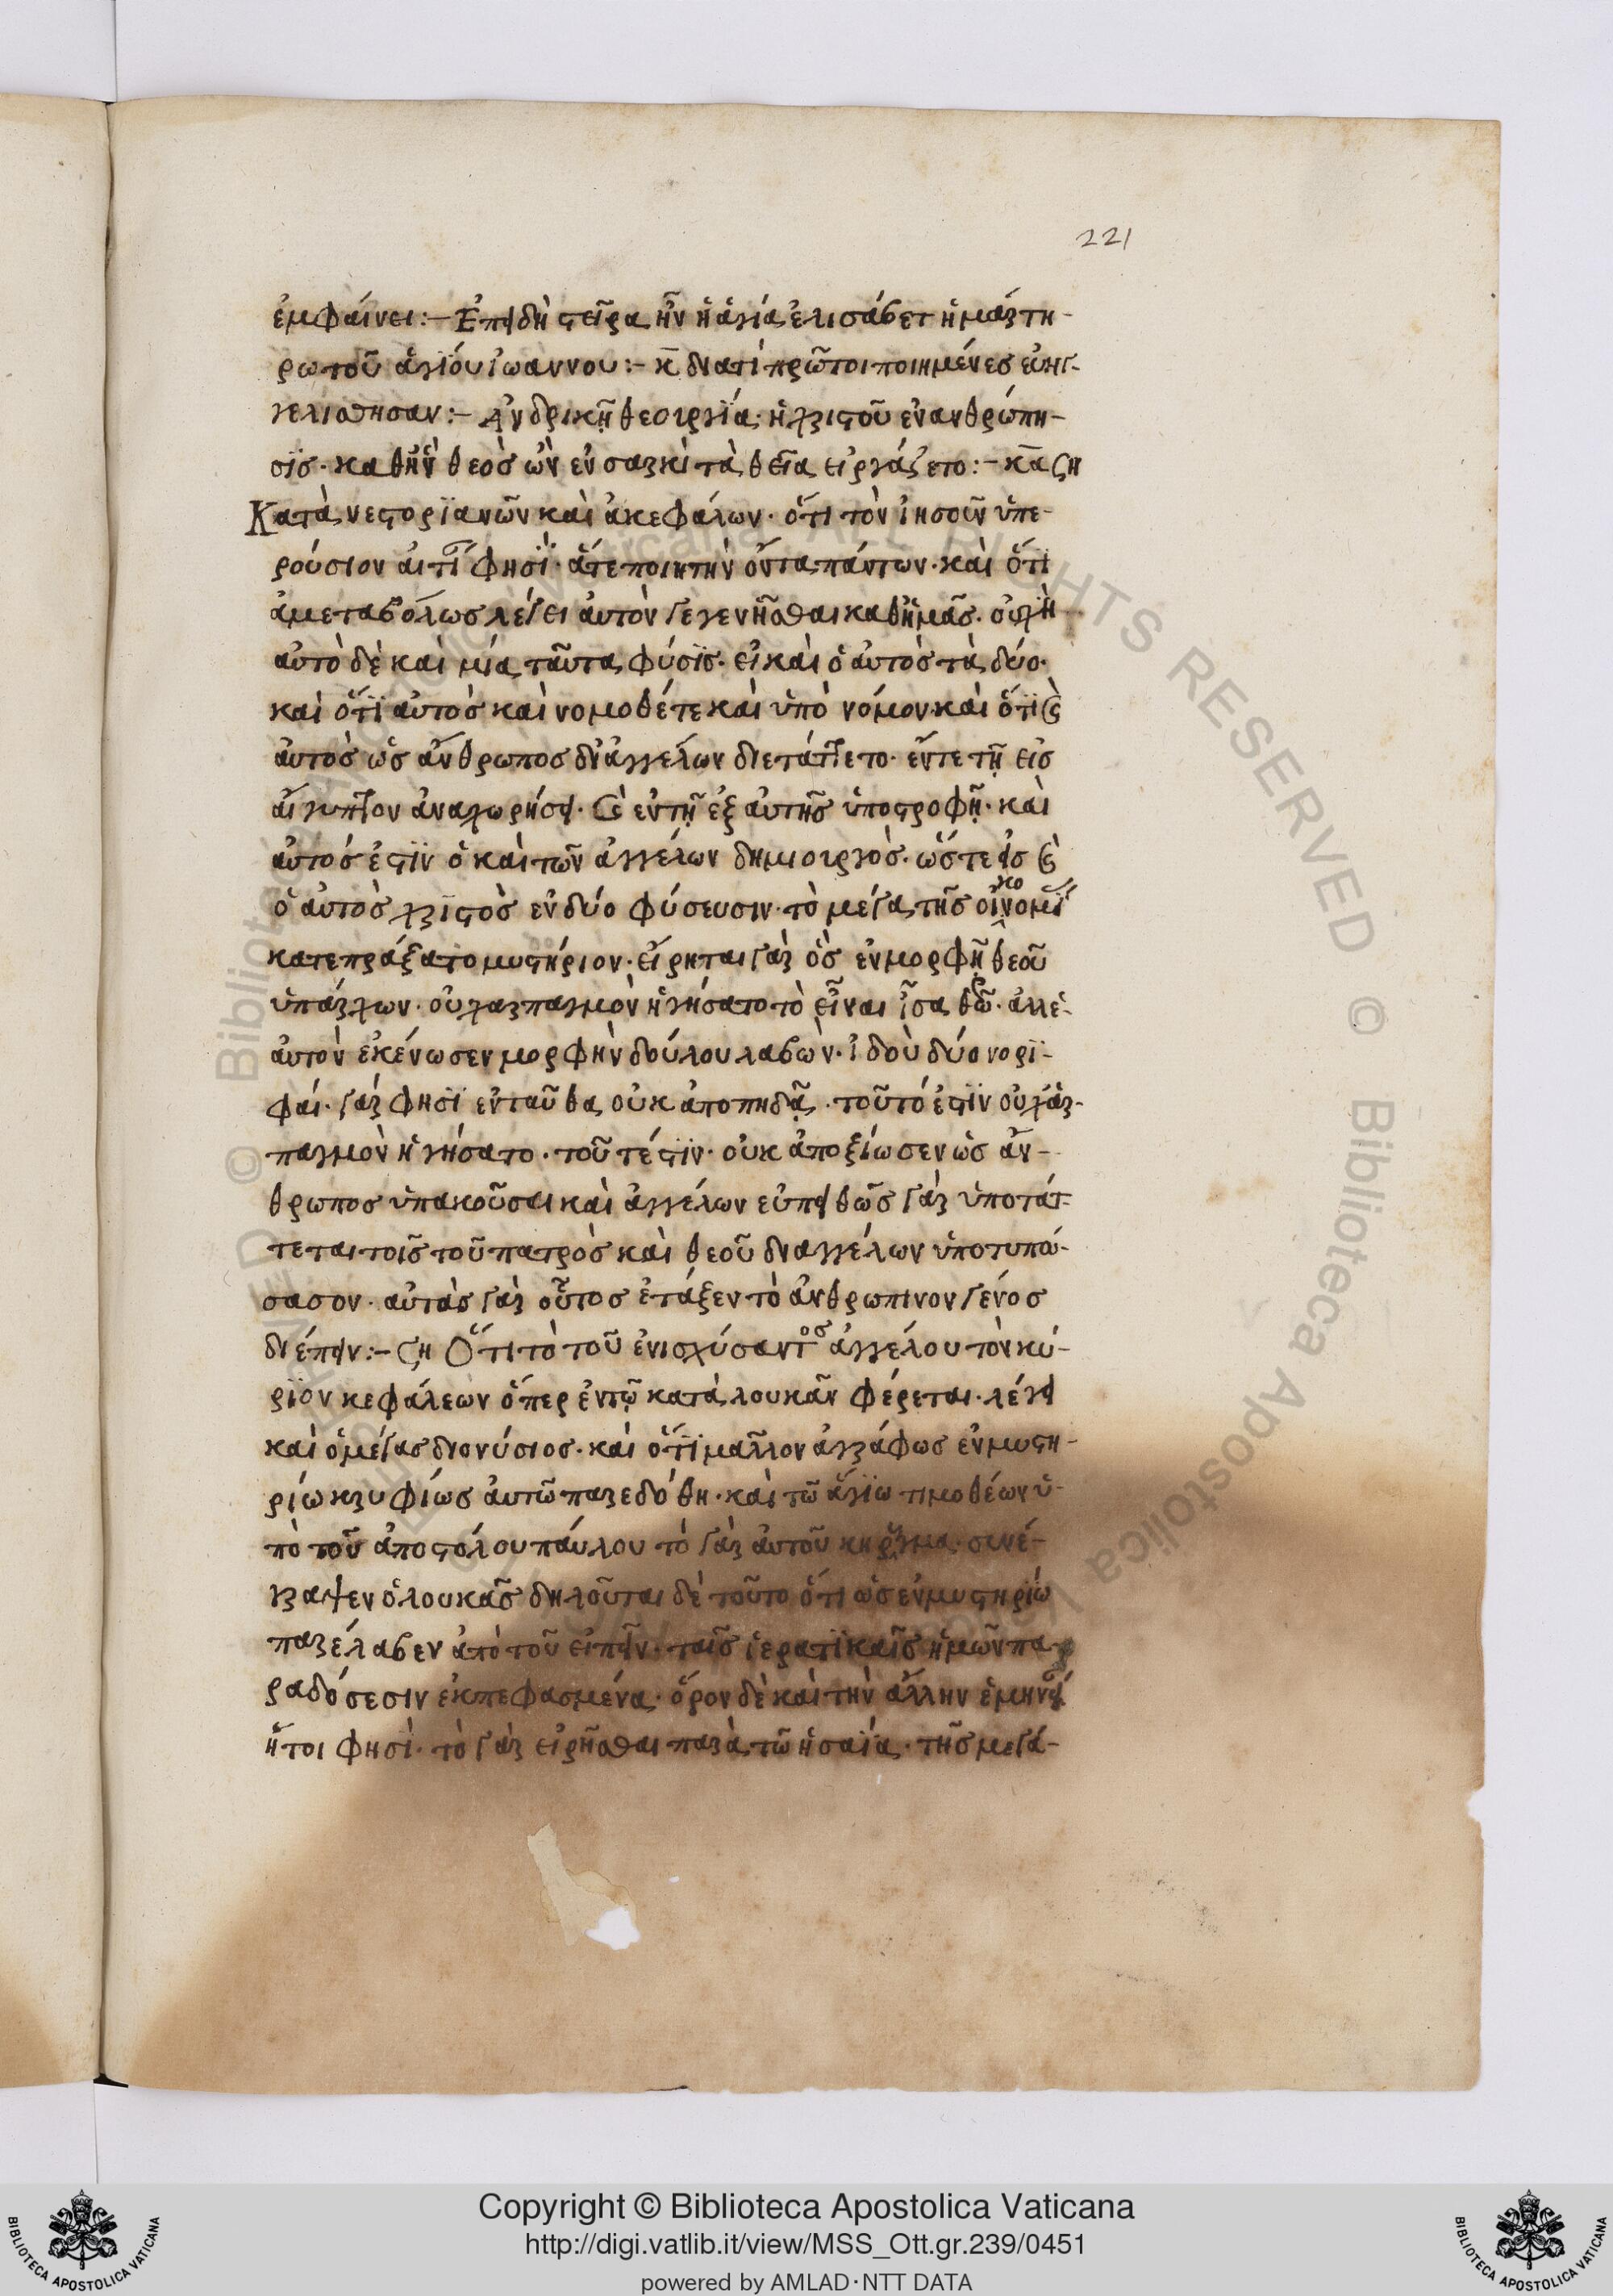 221
ἐμφαίνει:– Ἐπειδὴ στεῖρα ἦν ἡ ἁγία ἐλισάβετ ἡ μάρτη–
ρω τοῦ ἁγίου ἰωαννου:– κ̄ διατί πρῶτοι ποιημένες εὐηγ–
γελισθησαν:– Ἀνδρικῇ θεουργία· ἡ χριστοῦ ἐνανθρώπη–
σϊς· καθὴν θεὸς ὢν ἐν σαρκὶ τὰ θεῖα εἰργάζετο:– κ̄α ση
Κατὰ νεστορϊανῶν καὶ ἀκεφάλων· ὅτι τὸν ἰησοῦν ὑπε–
ρούσιον αἰτί φησϊ· ἅτε ποιητὴν ὄντα πάντων· καὶ ὅτι
ἀμεταβόλως λέγει ἀυτὸν γεγενῆσθαι καθἡμᾶς· οὐχὴ
αὐτὸ δὲ καὶ μία ταῦτα φύσϊς· εἰ καὶ ὁ αὐτὸς τὰ δύο·
καὶ ὅτϊ αὐτὸς καὶ νομοθέτε καὶ ὑπὸ νόμον καὶ ὅτϊ ϗ
ἀυτὸς ὡς ἄνθρωπος δι' ἀγγέλων διετάττετο· ἔντε τῇ εἰς
αἴγυπτον ἀναχωρήσει· ϗ ἐν τῇ ἐξ ἀυτῆς ὑποστροφῇ· καὶ
αὐτός ἐστϊν ὁ καὶ τῶν ἀγγέλων δημιουργὸς· ὥστε εἷς ϗ
ὁ αὐτὸς χριστὸς ἐν δύο φύσευσιν· τὸ μέγα τῆς οἰκονομί
κατεπράξατο μυστήριον· εἴρηται γὰρ ὃς ἐν μορφῇ θεοῦ
ὑπάρχων· οὐχ ἁρπαγμὸν ἡγήσατο τὸ εἶναι ἶσα θῶ· ἀλλὲ–
ἀυτὸν ἐκένωσεν μορφὴν δούλου λαβὼν· ἰδοὺ δύο νορϊ–
φαί· γάρ φησϊ ἐνταῦθα οὐκ ἀποπηδᾷ· τοῦτό ἐστϊν οὐχ ἁρ–
παγμὸν ἡγήσατο· τοῦτέστϊν· οὐκ ἀποξίωσεν ὡς ἄν–
θρωπος ὑπακοῦσαι καὶ ἀγγέλων εὐπειθῶς γὰρ ὑποτάτ–
τεται τοῖς τοῦ πατρὸς καὶ θεοῦ δι αγγέλων ὑποτυπώ–
σασον· αὐτὰς γὰρ οὗτος ἐτάξεν τὸ ἀνθρωπινον γένος
διέπειν:– Ση Ὅτι τὸ τοῦ ἐνισχύσαντος ἀγγέλου τὸν κύ–
ρϊον κεφάλεων ὅπερ ἐν τῷ κατὰ λουκᾶν φέρεται· λέγει
καὶ ὁ μέγας διονύσιος· καὶ ὅτϊ μᾶλλον ἀγράφως ἐν μυστη–
ρίω κρυφίως ἀυτῶ παρεδόθη· καὶ τῶ ἁγϊω τιμοθέων ὑ–
πὸ τοῦ ἀποστόλου παύλου τὸ γὰρ ἀυτοῦ κηρυγμα· συνέ–
γραψεν ὁ λουκᾶς δηλοῦται δὲ τοῦτο ὅτι ὡς ἐν μυστηρίω
παρέλαβεν ἀπὸ τοῦ εἰπεῖν· ταῖς ἱερατϊκαῖς ἡμῶν πα
ραδόσεσιν ἐκπεφασμένα· ὅρον δὲ καὶ τὴν ἄλλην ἑμηνεί
ἤτοι φησὶ· τὸ γὰρ εἰρῆσθαι παρὰ τῶ ἡσαΐα· τῆς μεγά–
Copyright © Biblioteca Apostolica Vaticana
http://digi.vatlib.it/view/MSS_Ott.gr.239/0451
powered by AMLAD·NTT DATA